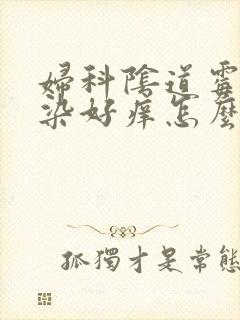 婦科陰道霉
染好痒怎麼
孤獨才是常態